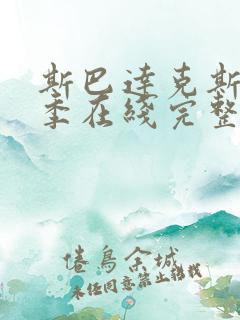 斯巴达克斯
季在线完整
倦鸟余城
未经同意禁止转载